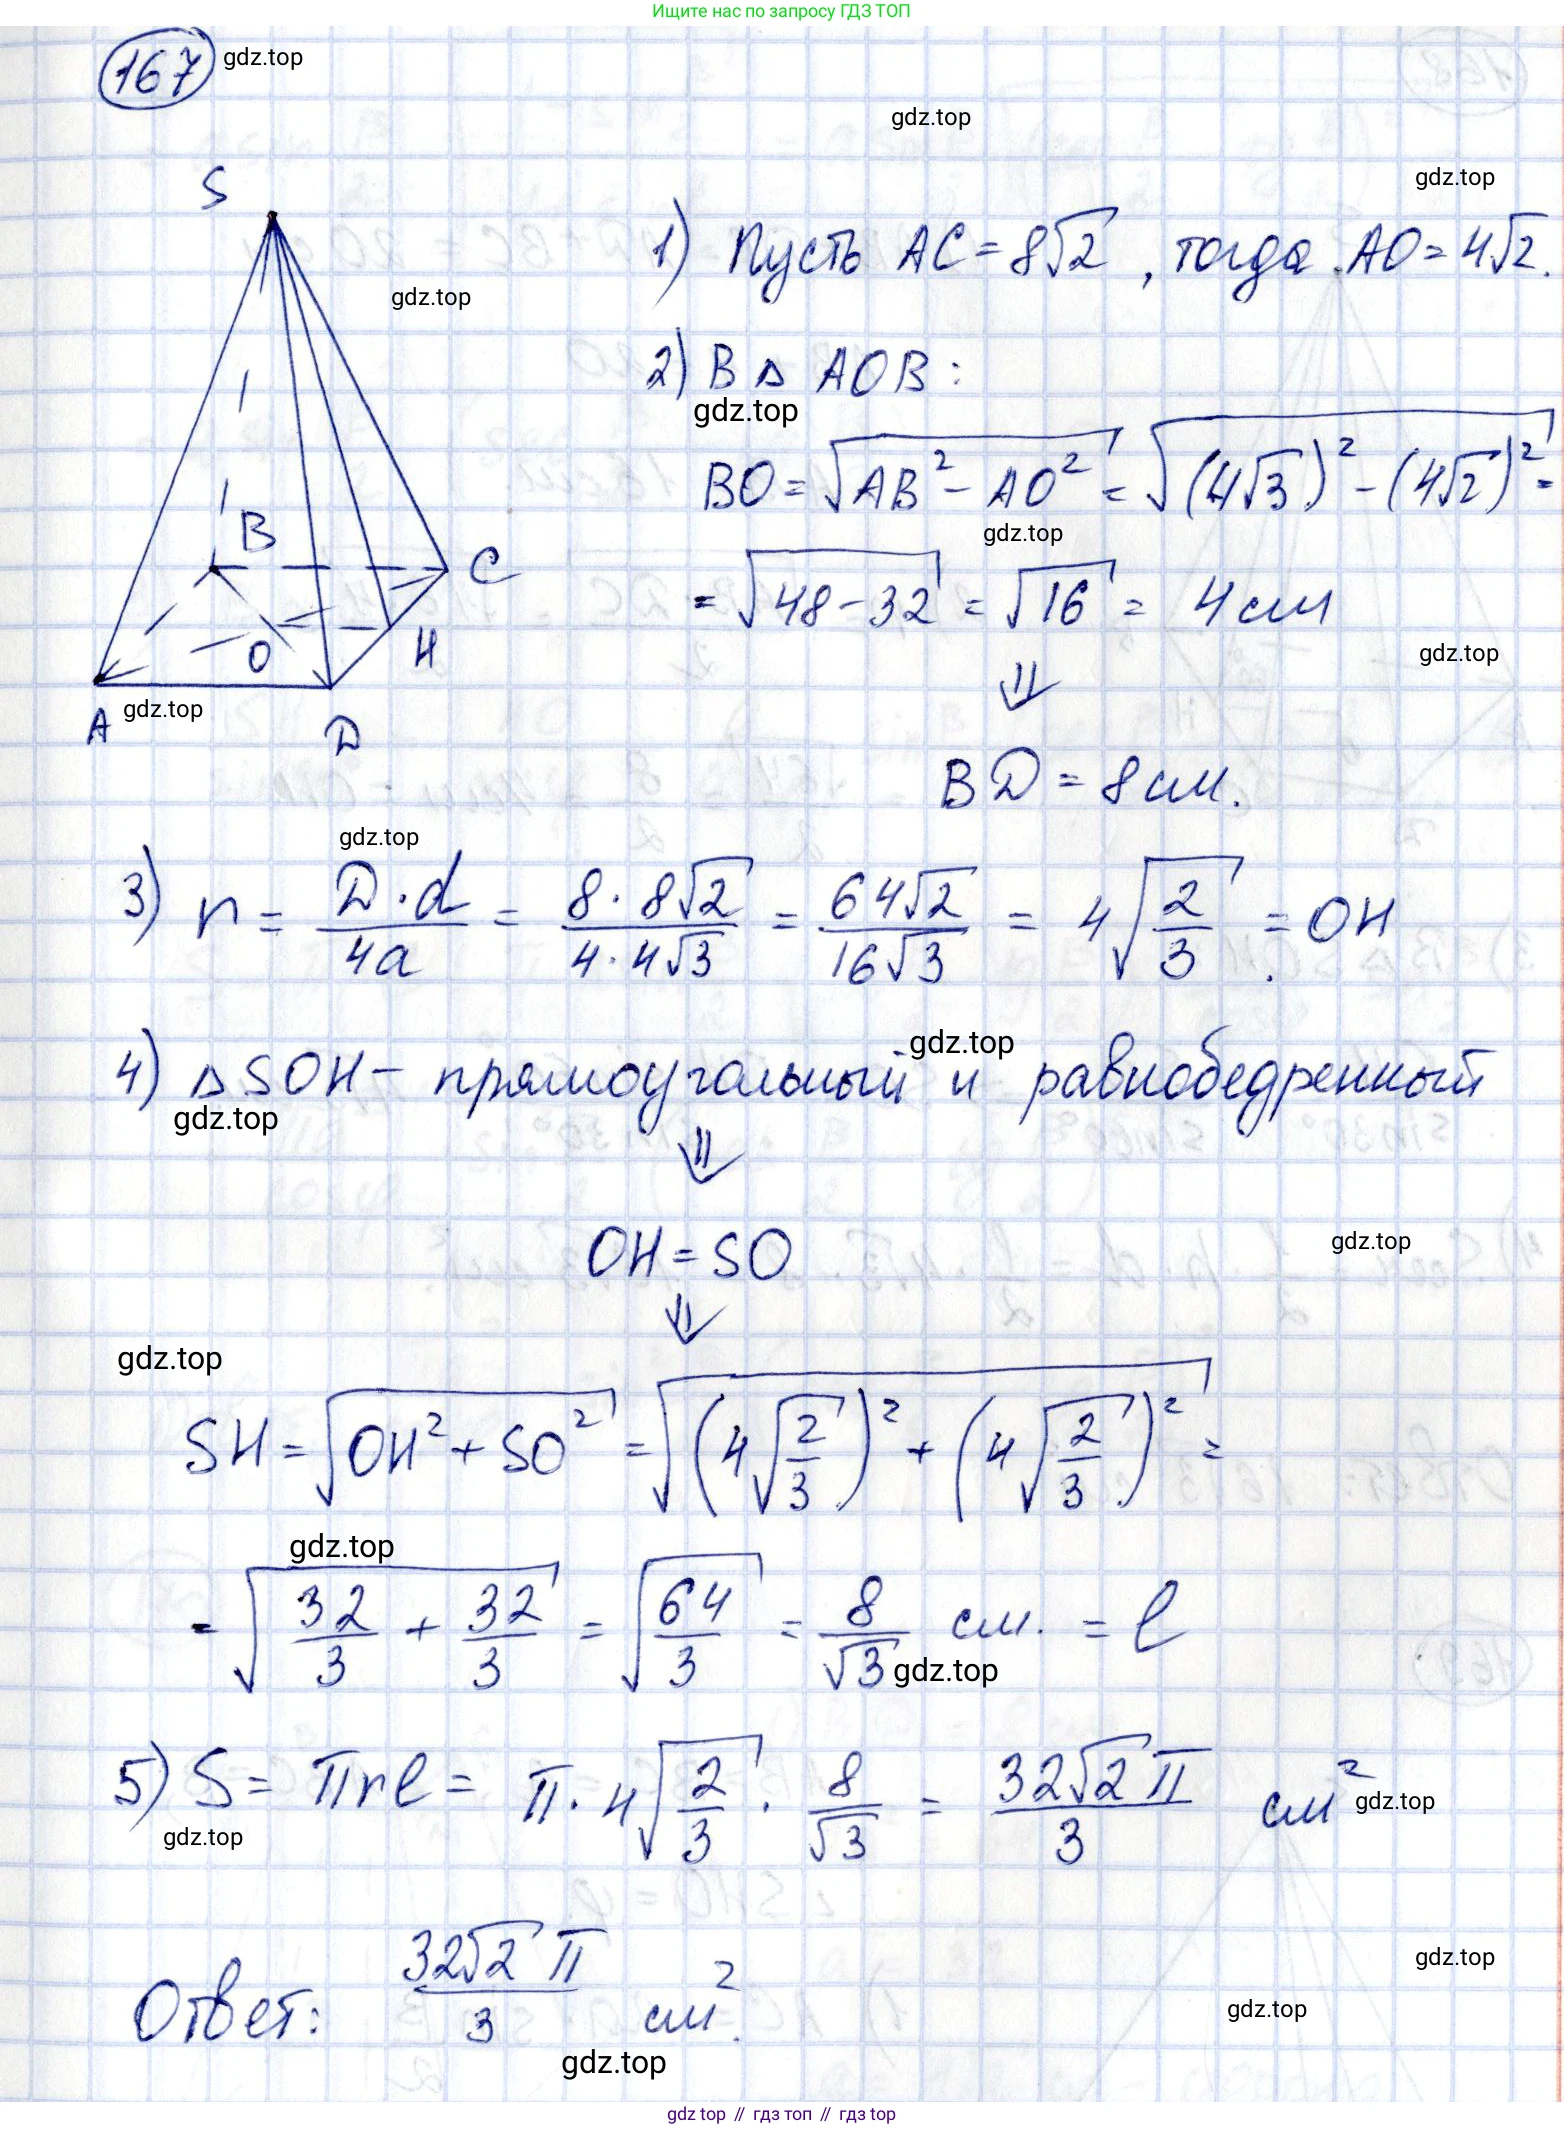 Ищите нас по запросу ГДЗ ТОП
167 gdz.top
gdz.top
gdz.top
S
gdz.top
1) Пусть AC = 8√2, тогда AO = 4√2.
2) В △ AOB:
gdz.top
BO = √(AB² - AO²) = √((4√3)² - (4√2)²) =
gdz.top
= √(48 - 32) = √16 = 4 см
B
C
O
H
gdz.top
⇓
A
gdz.top
D
BD = 8 см.
gdz.top
3) r = D·d/4a = 8·8√2/4·4√3 = 64√2/16√3 = 4√(2/3) = OH
gdz.top
4) △SOH - прямоугольный и равнобедренный
gdz.top
⇓
OH = SO
gdz.top
⇓
gdz.top
SH = √(OH² + SO²) = √((4√(2/3))² + (4√(2/3))²) =
gdz.top
= √(32/3 + 32/3) = √(64/3) = 8/√3 см. = l
gdz.top
5) S = πrl = π·4√(2/3)·8/√3 = 32√2π/3 см²
gdz.top
gdz.top
Ответ: 32√2π/3 см².
gdz.top
gdz.top
gdz.top
gdz top // гдз топ // гдз top